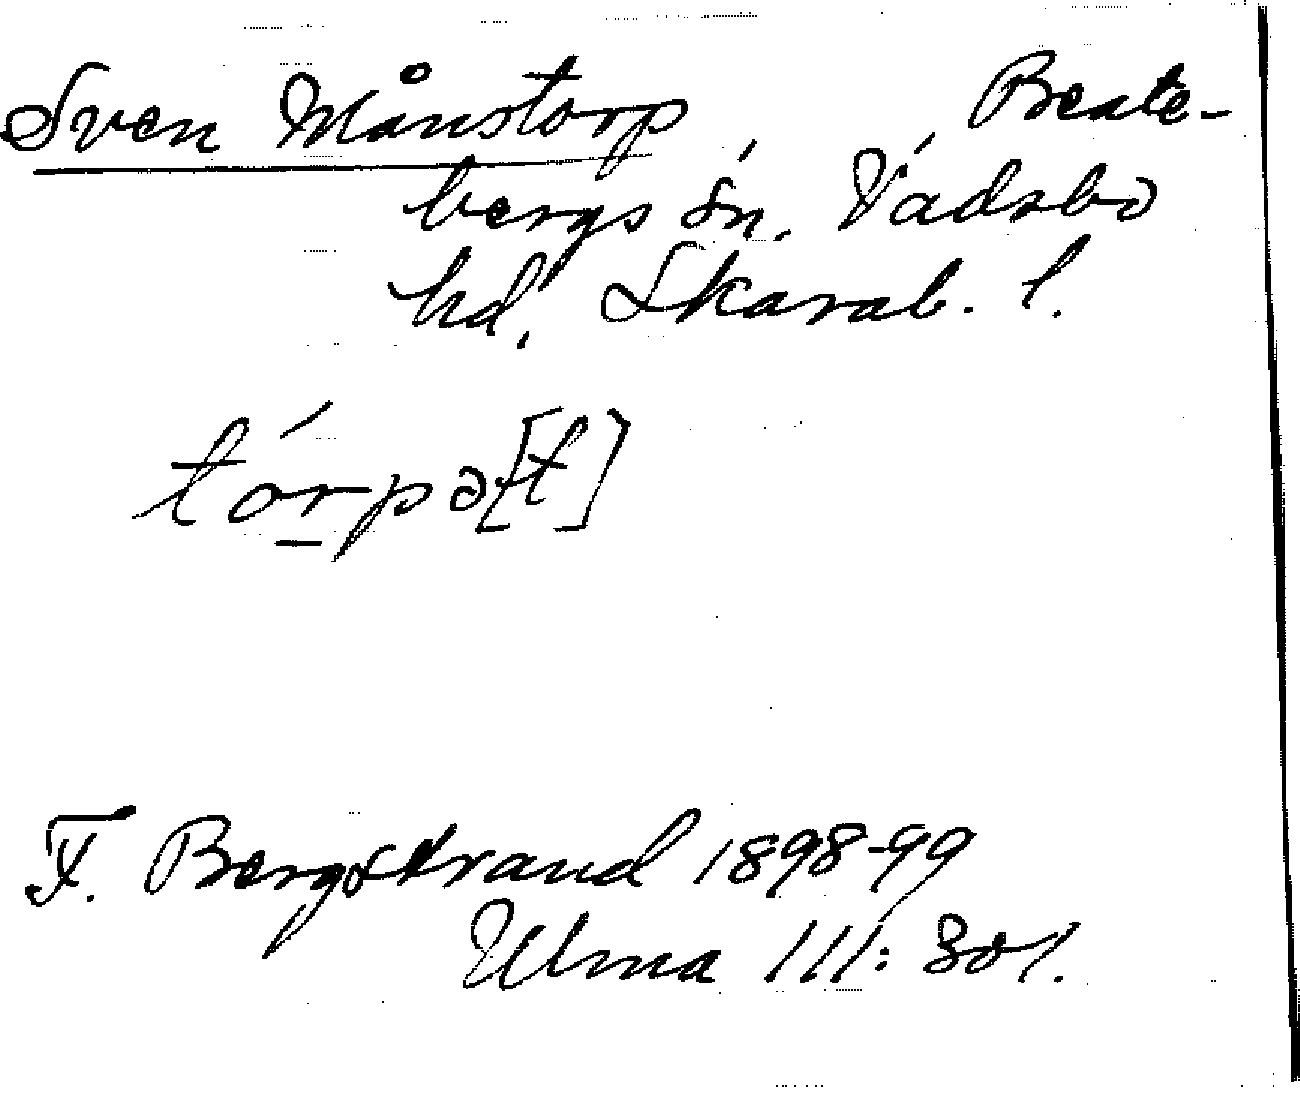 Sven Månstorp Beate-
bergs sn. Vadsbo
hd, Skarab. l.
tórpə[t]
F. Bergstrand 1898-99
Ulma 111: 301.